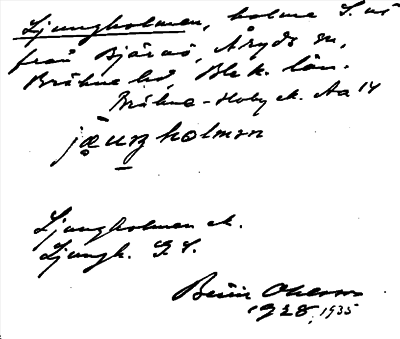 Ljungholmen, holme S. ut
från Bjärnö, Åryds sn,
Bräkne hd, Blek. län.
Bräkne-Hoby ek. Aa 14
jæuŋholmən
Ljungholmen ek.
Ljungh. G.S.
Bertil Ohlsson
1928, 1935